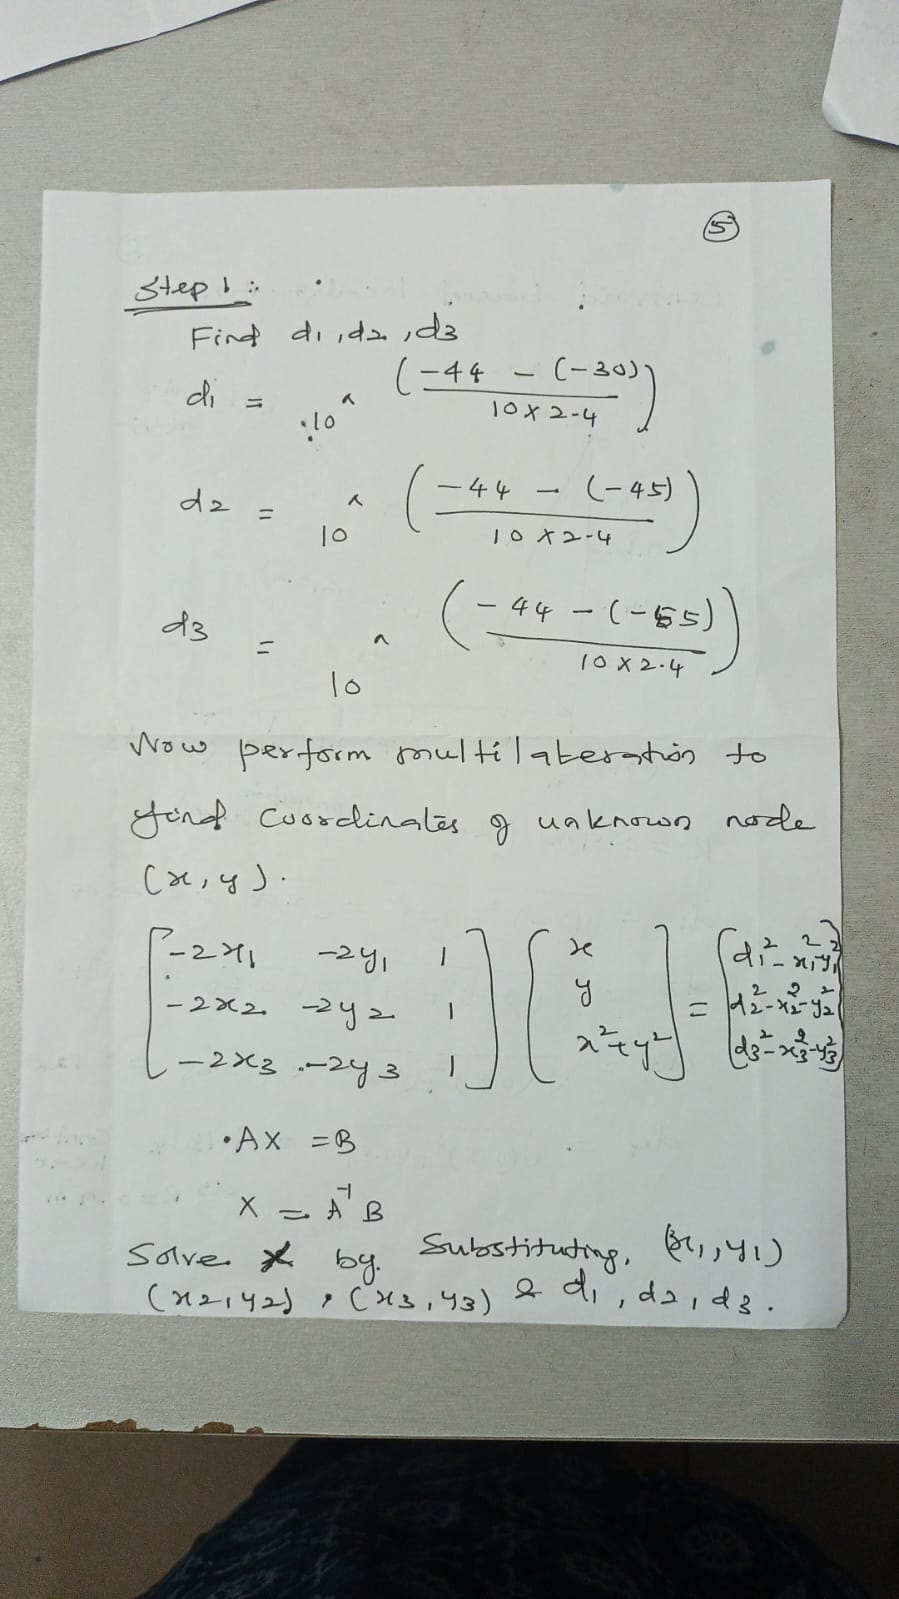 5
Step 1:
Find d1, d2, d3
d1 = 10 ^ ( -44 - (-30) / 10 x 2-4 )
d2 = 10 ^ ( -44 - (-45) / 10 x 2-4 )
d3 = 10 ^ ( -44 - (-55) / 10 x 2.4 )
Now perform multilateration to
find coordinates of unknown node
(x, y).
[ -2x1 -2y1 1 ] [ x ] = [ d1² - x1² - y1² ]
[ -2x2 -2y2 1 ] [ y ] = [ d2² - x2² - y2² ]
[ -2x3 -2y3 1 ] [ x² + y² ] = [ d3² - x3² - y3² ]
AX = B
X = A⁻¹ B
Solve X by Substituting, (x1, y1)
(x2, y2), (x3, y3) & d1, d2, d3.